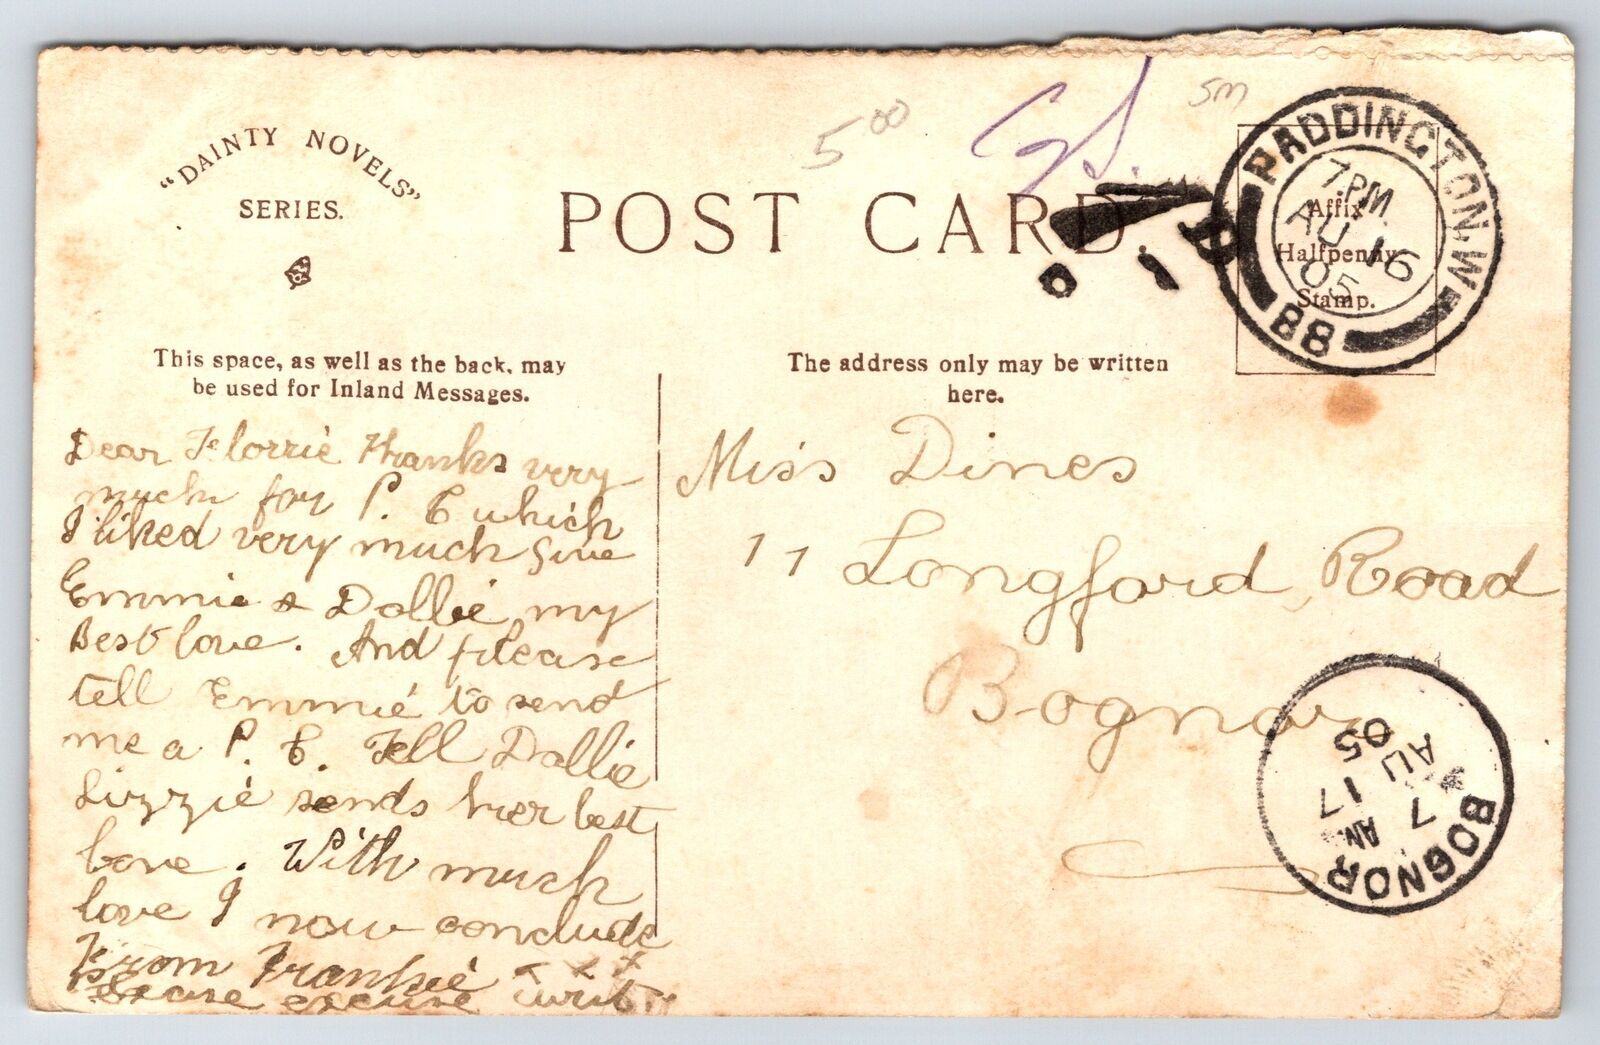 "DAINTY NOVELS"
SERIES.
5 00
5M
POST CARD.
PADDINGTON. W.
7.PM
AU 16
05
88
Affix
Halfpenny
Stamp.
This space, as well as the back, may
be used for Inland Messages.
The address only may be written
here.
Dear Florrie Thanks very
much for P. C which
I liked very much Give
Emmie & Dollie my
Best love. And please
tell Emmie to send
me a P. C. Tell Dollie
Lizzie sends her best
love. With much
love I now conclude
From Frankie x x x
please excuse writ.
Miss Dines
11 Longford Road
Bognor
BOGNOR
7 AM
AU 17
05